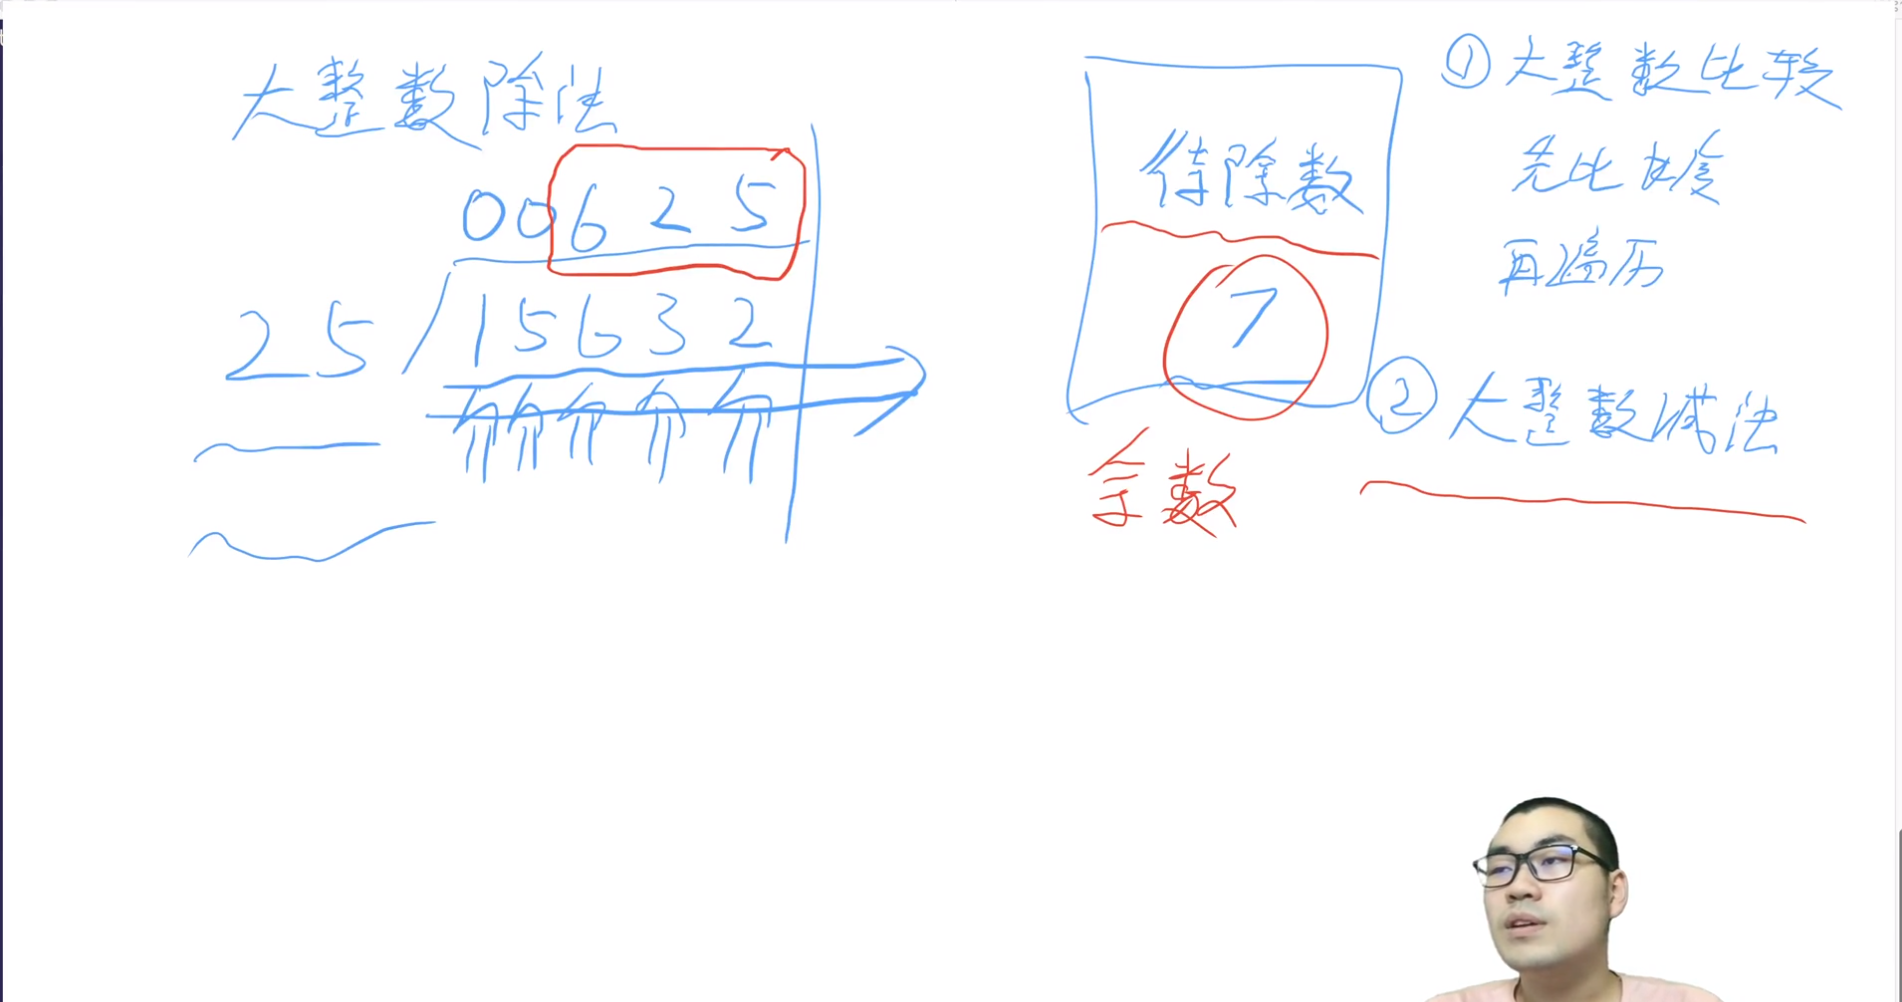 大整数除法
00625
25/15632
待除数
7
余数
① 大整数比较
先比长度
再遍历
② 大整数减法